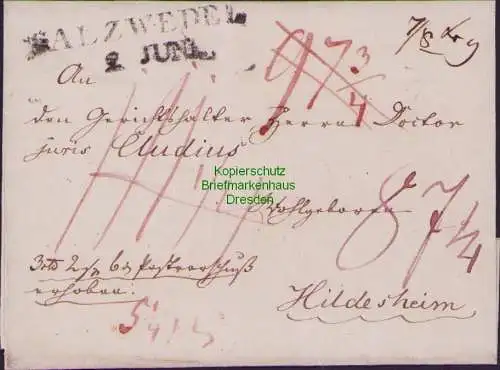 SALZWEDEL
2 JUNI
7/8
97 3/4
An
den Gerichtshalter Herrn Doctor
juris Cludius
Kopierschutz
Briefmarkenhaus
Dresden
Wohlgeboren
8 7 1/4
Postvorschuß
erhoben.
Hildesheim